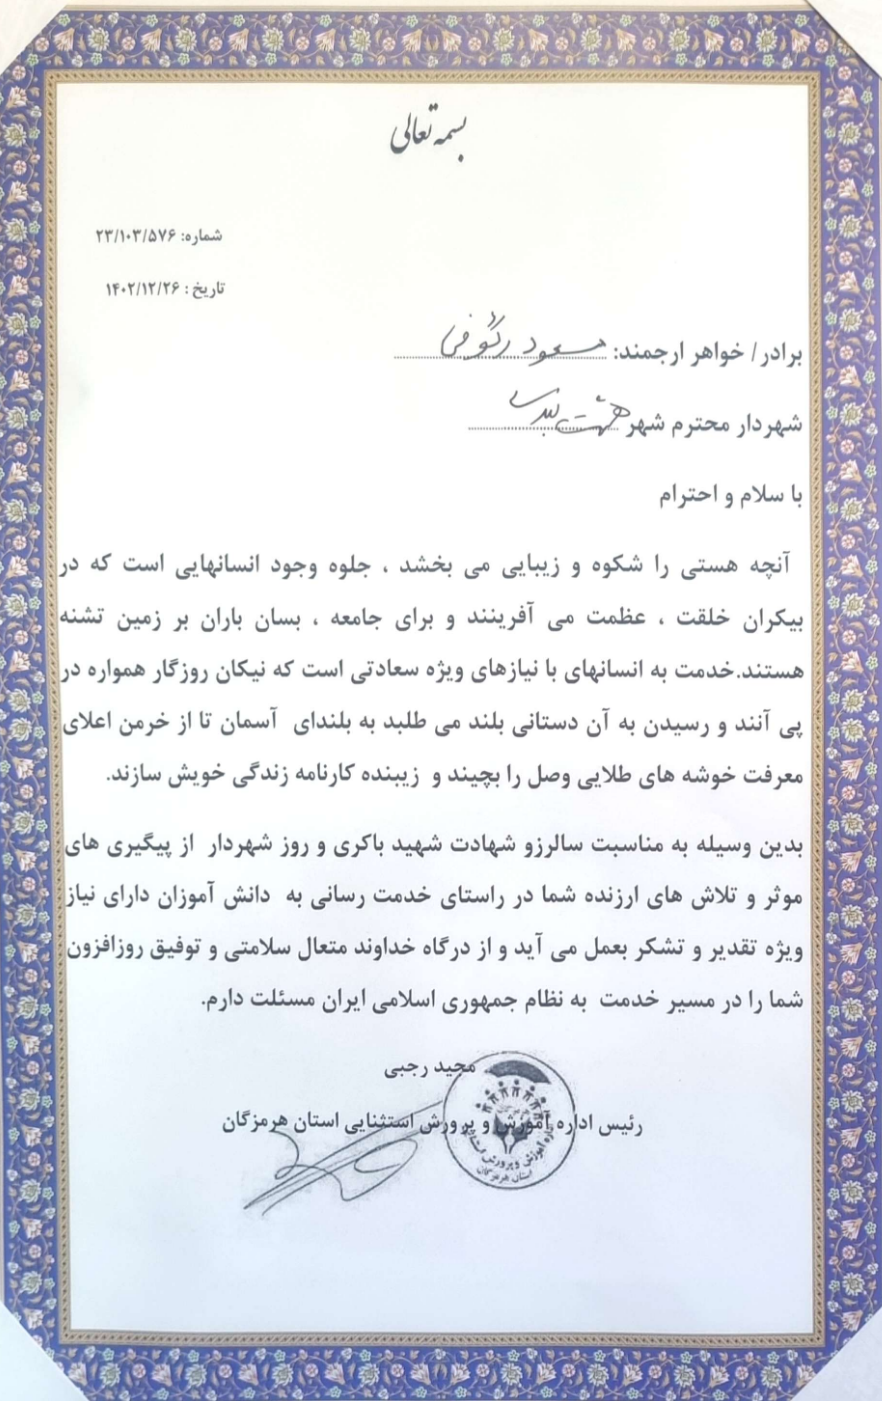 بسمه تعالی
شماره: ۲۳/۱۰۳/۵۷۶
تاریخ : ۱۴۰۲/۱۲/۲۶
برادر/ خواهر ارجمند: مسعود رئوفی
شهردار محترم شهر هشت بندی
با سلام و احترام
آنچه هستی را شکوه و زیبایی می بخشد ، جلوه وجود انسانهایی است که در
بیکران خلقت ، عظمت می آفرینند و برای جامعه ، بسان باران بر زمین تشنه
هستند.خدمت به انسانهای با نیازهای ویژه سعادتی است که نیکان روزگار همواره در
پی آنند و رسیدن به آن دستانی بلند می طلبد به بلندای آسمان تا از خرمن اعلای
معرفت خوشه های طلایی وصل را بچیند و زیبنده کارنامه زندگی خویش سازند.
بدین وسیله به مناسبت سالرزو شهادت شهید باکری و روز شهردار از پیگیری های
موثر و تلاش های ارزنده شما در راستای خدمت رسانی به دانش آموزان دارای نیاز
ویژه تقدیر و تشکر بعمل می آید و از درگاه خداوند متعال سلامتی و توفیق روزافزون
شما را در مسیر خدمت به نظام جمهوری اسلامی ایران مسئلت دارم.
مجید رجبی
رئیس اداره آموزش و پرورش استثنایی استان هرمزگان
آموزش و پرورش استثنایی
استان هرمزگان